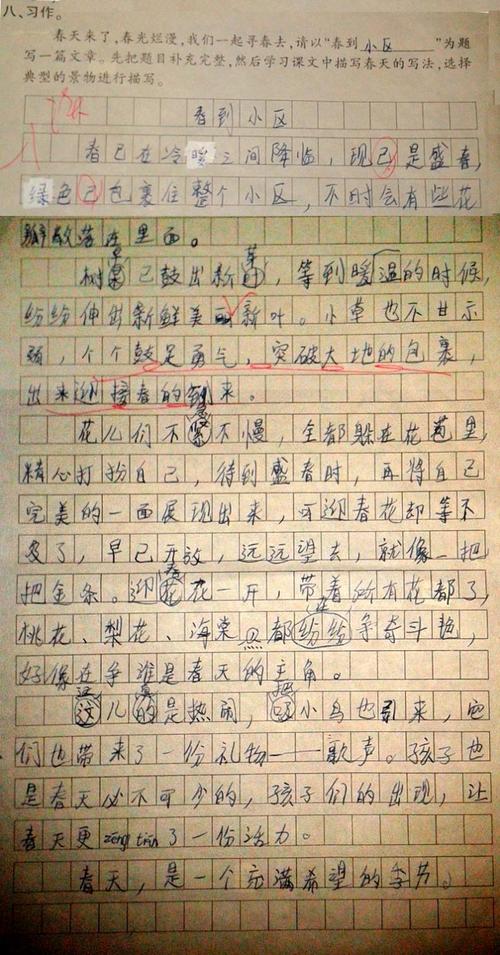 八、习作。
春天来了，春光烂漫，我们一起寻春去，请以“春到 小区 ”为题
写一篇文章。先把题目补充完整，然后学习课文中描写春天的写法，选择
典型的景物进行描写。
春到小区
春已在冷暖之间降临，现已是盛春，
绿色已包裹住整个小区，不时会有些花
瓣散落在里面。
树已鼓出新芽，等到暖温的时候，
纷纷伸出新鲜美丽新叶。小草也不甘示
弱，个个鼓足勇气，突破大地的包裹，
出来迎接春的到来。
花儿们不急不慢，全都躲在花苞里，
精心打扮自己，待到盛春时，再将自己
完美的一面展现出来，可迎春花却等不
及了，早已开放，远远望去，就像一把
把金条。迎春花一开，带着所有花都了，
桃花、梨花、海棠 都纷纷争奇斗艳，
好像在争谁是春天的主角。
这儿真是热闹，把小鸟也引来，它
们也带来了一份礼物——歌声。孩子也
是春天必不可少的，孩子们的出现，让
春天更zēng tiān了一份活力。
春天，是一个充满希望的季节。